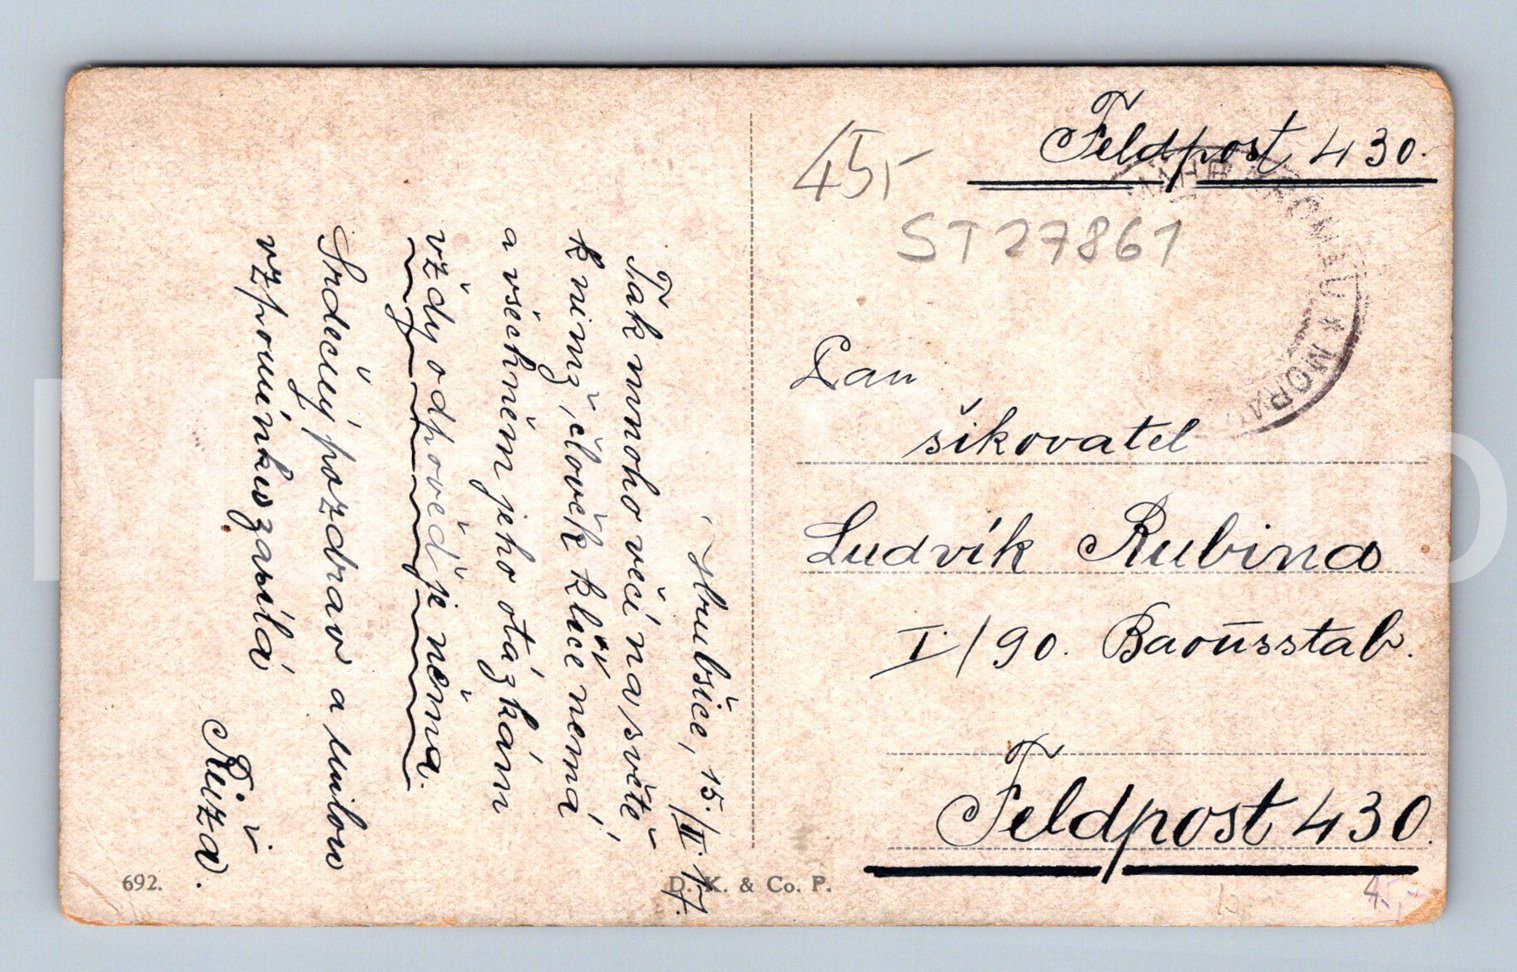 Hrubšice, 15./II. 17.
Tak mnoho věcí na světě
k nimž člověk klíče nemá
a všechněm jeho otázkám
vždy odpověď je něma.
Srdečný pozdrav a milou
vzpomínku zasílá
Růža.
692.
D. K. & Co. P.
Feldpost 430.
45,-
ST27861
KROMAU * MORAV
Pan
šikovatel
Ludvík Rubina
I./90. Baonsstab.
Feldpost 430.
45,-